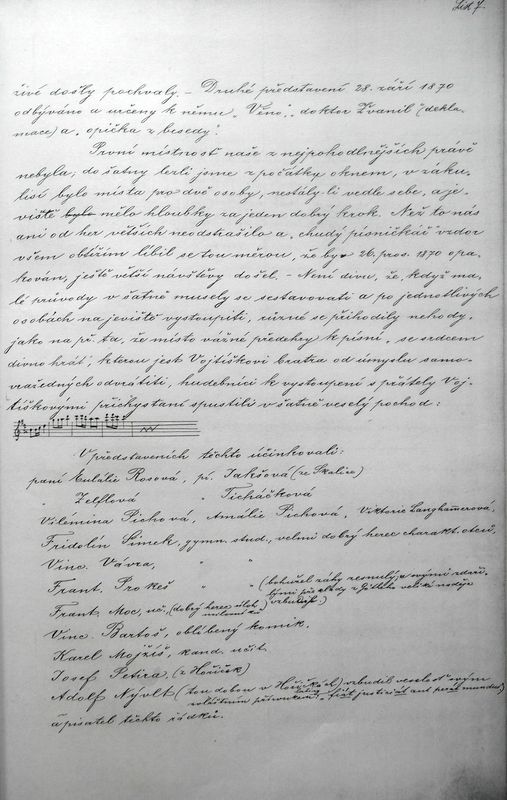 List 7.
živé došly pochvaly. – Druhé představení 28. září 1870
odbýváno a určeny k němu „Věno“, doktor Zvanil (dekla-
mace) a „opička z besedy“.
První místnost naše z nejpohodlnějších právě
nebyla; do šatny lezli jsme z počátku oknem, v záku-
lisí bylo místa pro dvě osoby, nestály-li vedle sebe, a je-
viště mělo hloubky za jeden dobrý krok. Než to nás
ani od her větších neodstrašilo a „chudý písničkář“ vzdor
všem obtížím líbil se tou měrou, že by 26. pros. 1870 opa-
kován, ještě větší návštěvy došel. – Není divu, že, když ma-
lé průvody v šatně musely se sestavovati a po jednotlivých
osobách na jeviště vystoupiti, různé se přihodily nehody,
jako na př. ta, že místo vážné předehry k písni „se srdcem
divno hrát“, kterou jest Vojtíškovi bratra od úmyslu samo-
vražedných odvrátiti, hudebníci k vystoupení s přátely Voj-
tíškovými přichystaní spustili v šatně veselý pochod:
V představeních těchto účinkovali:
paní Eulálie Rosová, pí. Jakšová (ze Skalice)
„ Zelflová „ Ticháčková
Vilémina Pichová, Amálie Pichová, Viktorie Langhammerová,
Fridolín Šimek, gymn. stud., velmi dobrý herec charakt. otců,
Vinc. Vávra, „ „
Frant. Prokeš „ „ (bohužel záhy zesnulý, a svými zdaři-
lými překlady z Göthe veliké naděje
vzbudiv.)
Frant. Moc, uč., (dobrý herec úloh
milovníků)
Vinc. Bartoš, oblíbený komik.
Karel Mojžíš, kand. učit.
Josef Petira, (z Hořiček)
Adolf Nývlt (tou dobou v Hořičkách) vzbudil veselost svým
zvláštním přízvukem: „fiat justitia aut perat mundus)
a pisatel těchto řádků.